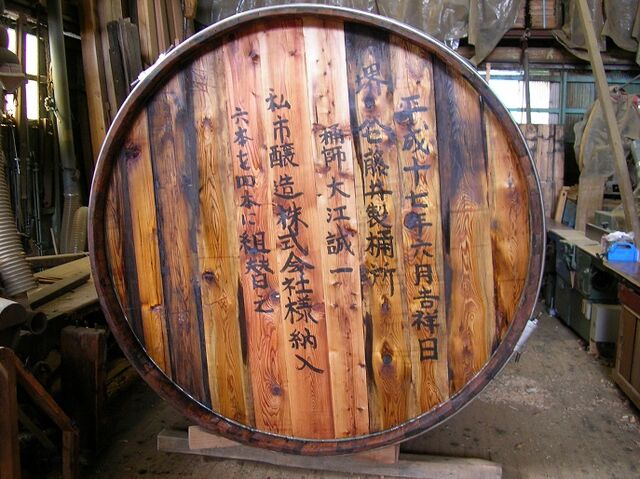 平成十七年六月吉祥日
堺 ㊎ 藤井製桶所
桶師 大江誠一
私市醸造株式会社様納入
六本を四本に組替之